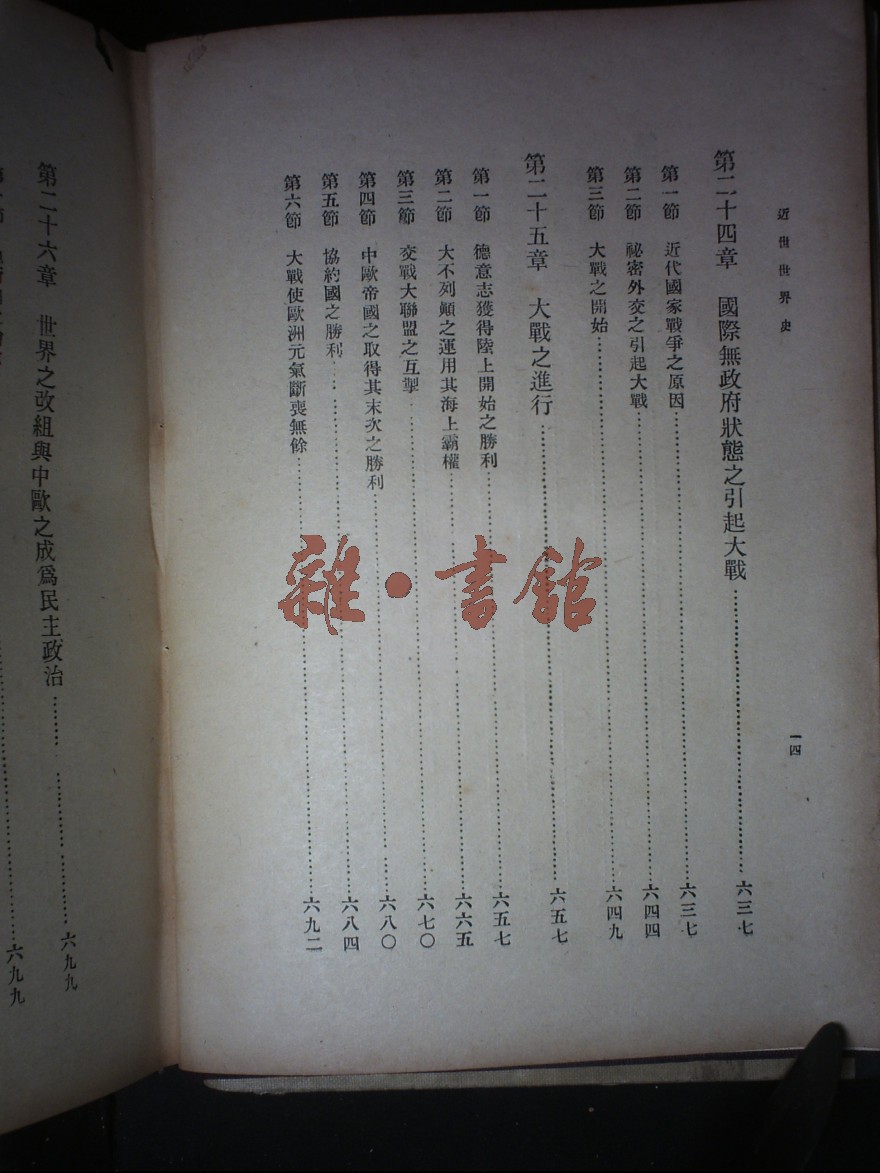 近世世界史
一四
第二十四章　國際無政府狀態之引起大戰……六三七
第一節　近代國家戰爭之原因……六三七
第二節　祕密外交之引起大戰……六四四
第三節　大戰之開始……六四九
第二十五章　大戰之進行……六五七
第一節　德意志獲得陸上開始之勝利……六五七
第二節　大不列顛之運用其海上霸權……六六五
第三節　交戰大聯盟之互掣……六七〇
第四節　中歐帝國之取得其末次之勝利……六八〇
第五節　協約國之勝利……六八四
第六節　大戰使歐洲元氣斷喪無餘……六九二
第二十六章　世界之改組與中歐之成爲民主政治……六九九
……六九九
雜·書館